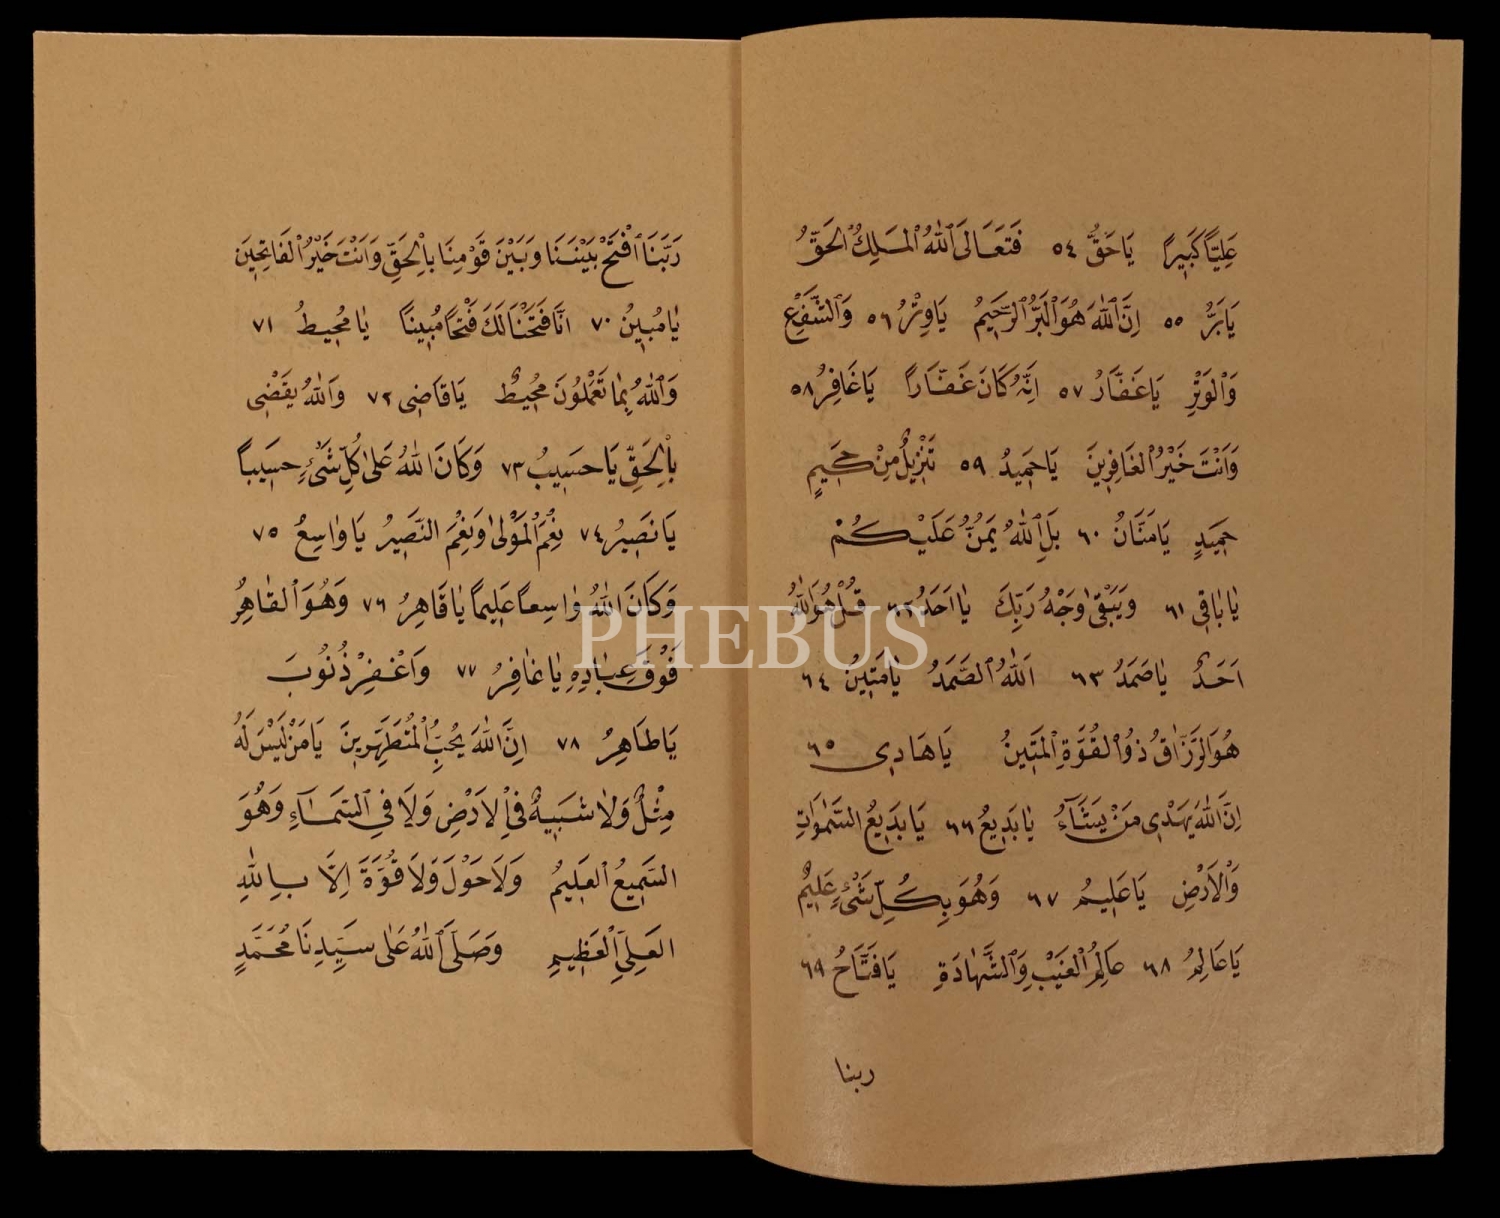 عَلِيًّا كَبِيرًا يَا حَقُّ ٥٤ فَتَعَالَى اللهُ الْمَلِكُ الْحَقُّ
يَا بَرُّ ٥٥ اِنَّ اللهَ هُوَ الْبَرُّ الرَّحِيمُ يَا وِتْرُ ٥٦ وَالشَّفْعِ
وَالْوَتْرِ يَا غَفَّارُ ٥٧ اِنَّهُ كَانَ غَفَّارًا يَا غَافِرُ ٥٨
وَاَنْتَ خَيْرُ الْغَافِرِينَ يَا حَمِيدُ ٥٩ تَنْزِيلٌ مِنْ حَكِيمٍ
حَمِيدٍ يَا مَنَّانُ ٦٠ بَلِ اللهُ يَمُنُّ عَلَيْكُمْ
يَا بَاقِى ٦١ وَيَبْقٰى وَجْهُ رَبِّكَ يَا اَحَدُ ٦٢ قُلْ هُوَ اللهُ
اَحَدٌ يَا صَمَدُ ٦٣ اَللهُ الصَّمَدُ يَا مَتِينُ ٦٤
هُوَ الرَّزَّاقُ ذُو الْقُوَّةِ الْمَتِينُ يَا هَادِى ٦٥
اِنَّ اللهَ يَهْدِى مَنْ يَشَآءُ يَا بَدِيعُ ٦٦ يَا بَدِيعُ السَّمٰوَاتِ
وَالْاَرْضِ يَا عَلِيمُ ٦٧ وَهُوَ بِكُلِّ شَىْءٍ عَلِيمٌ
يَا عَالِمُ ٦٨ عَالِمُ الْغَيْبِ وَالشَّهَادَةِ يَا فَتَّاحُ ٦٩
ربنا
رَبَّنَا افْتَحْ بَيْنَنَا وَبَيْنَ قَوْمِنَا بِالْحَقِّ وَاَنْتَ خَيْرُ الْفَاتِحِينَ
يَا مُبِينُ ٧٠ اِنَّا فَتَحْنَا لَكَ فَتْحًا مُبِينًا يَا مُحِيطُ ٧١
وَاللهُ بِمَا تَعْمَلُونَ مُحِيطٌ يَا قَاضِى ٧٢ وَاللهُ يَقْضِى
بِالْحَقِّ يَا حَسِيبُ ٧٣ وَكَانَ اللهُ عَلٰى كُلِّ شَىْءٍ حَسِيبًا
يَا نَصِيرُ ٧٤ نِعْمَ الْمَوْلٰى وَنِعْمَ النَّصِيرُ يَا وَاسِعُ ٧٥
وَكَانَ اللهُ وَاسِعًا عَلِيمًا يَا قَاهِرُ ٧٦ وَهُوَ الْقَاهِرُ
فَوْقَ عِبَادِهِ يَا غَافِرُ ٧٧ وَاغْفِرْ ذُنُوبَ
يَا طَاهِرُ ٧٨ اِنَّ اللهَ يُحِبُّ الْمُتَطَهِّرِينَ يَا مَنْ لَيْسَ لَهُ
مِثْلٌ وَلَا شَبِيهٌ فِى الْاَرْضِ وَلَا فِى السَّمَاءِ وَهُوَ
السَّمِيعُ الْعَلِيمُ وَلَا حَوْلَ وَلَا قُوَّةَ اِلَّا بِاللهِ
الْعَلِىِّ الْعَظِيمِ وَصَلَّى اللهُ عَلٰى سَيِّدِنَا مُحَمَّدٍ
PHEBUS